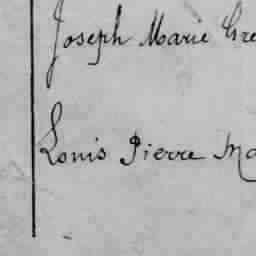 Joseph Marie Gre
Louis Pierre Ma